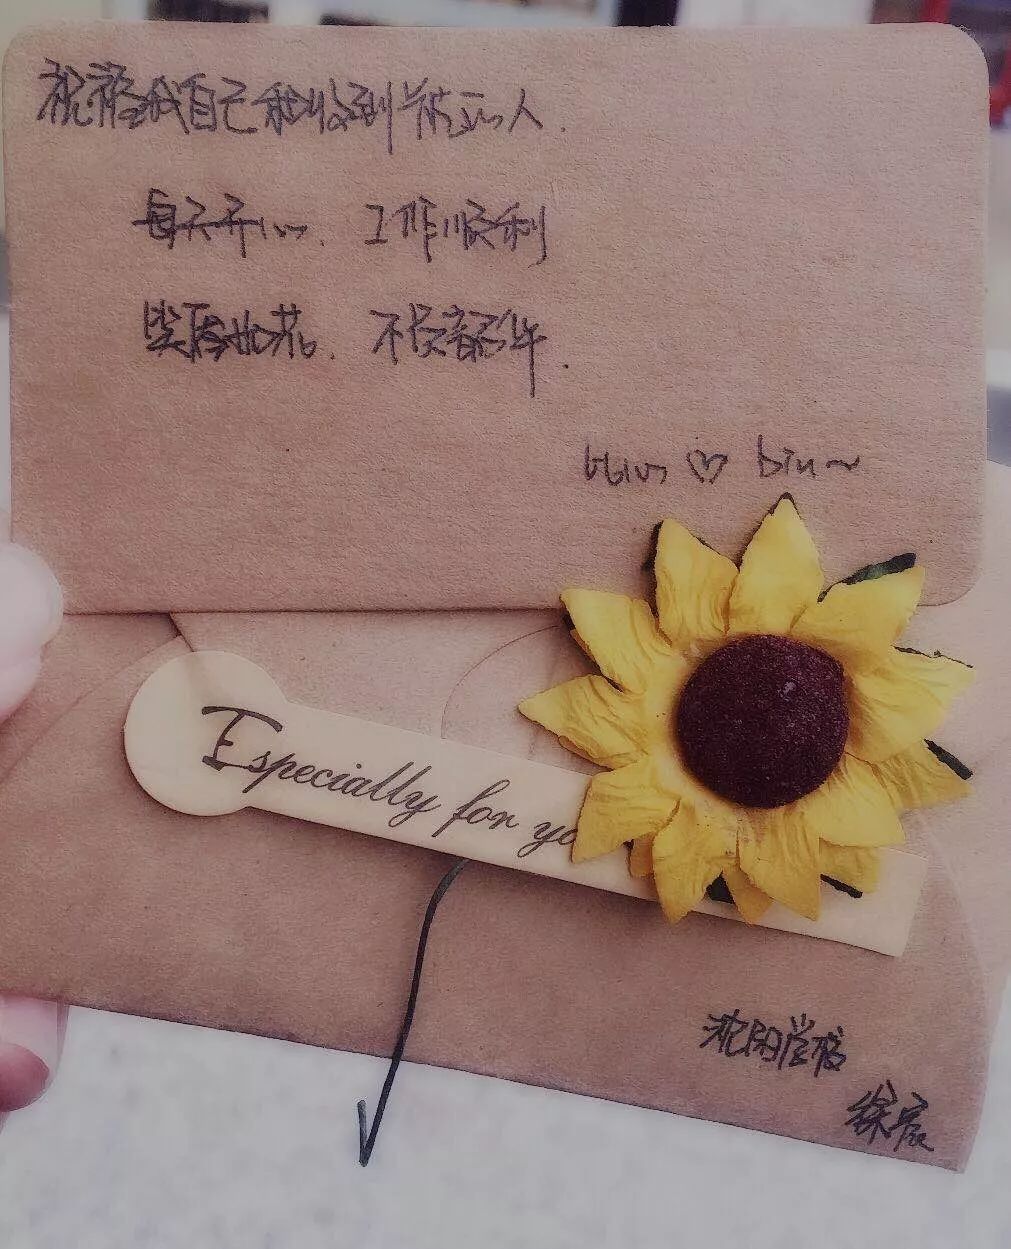 祝福我自己和收到卡片的人.
每天开心、工作顺利
笑靥如花、不负韶华.
比心♡ biu~
Especially for yo
沈阳学校
徐宸